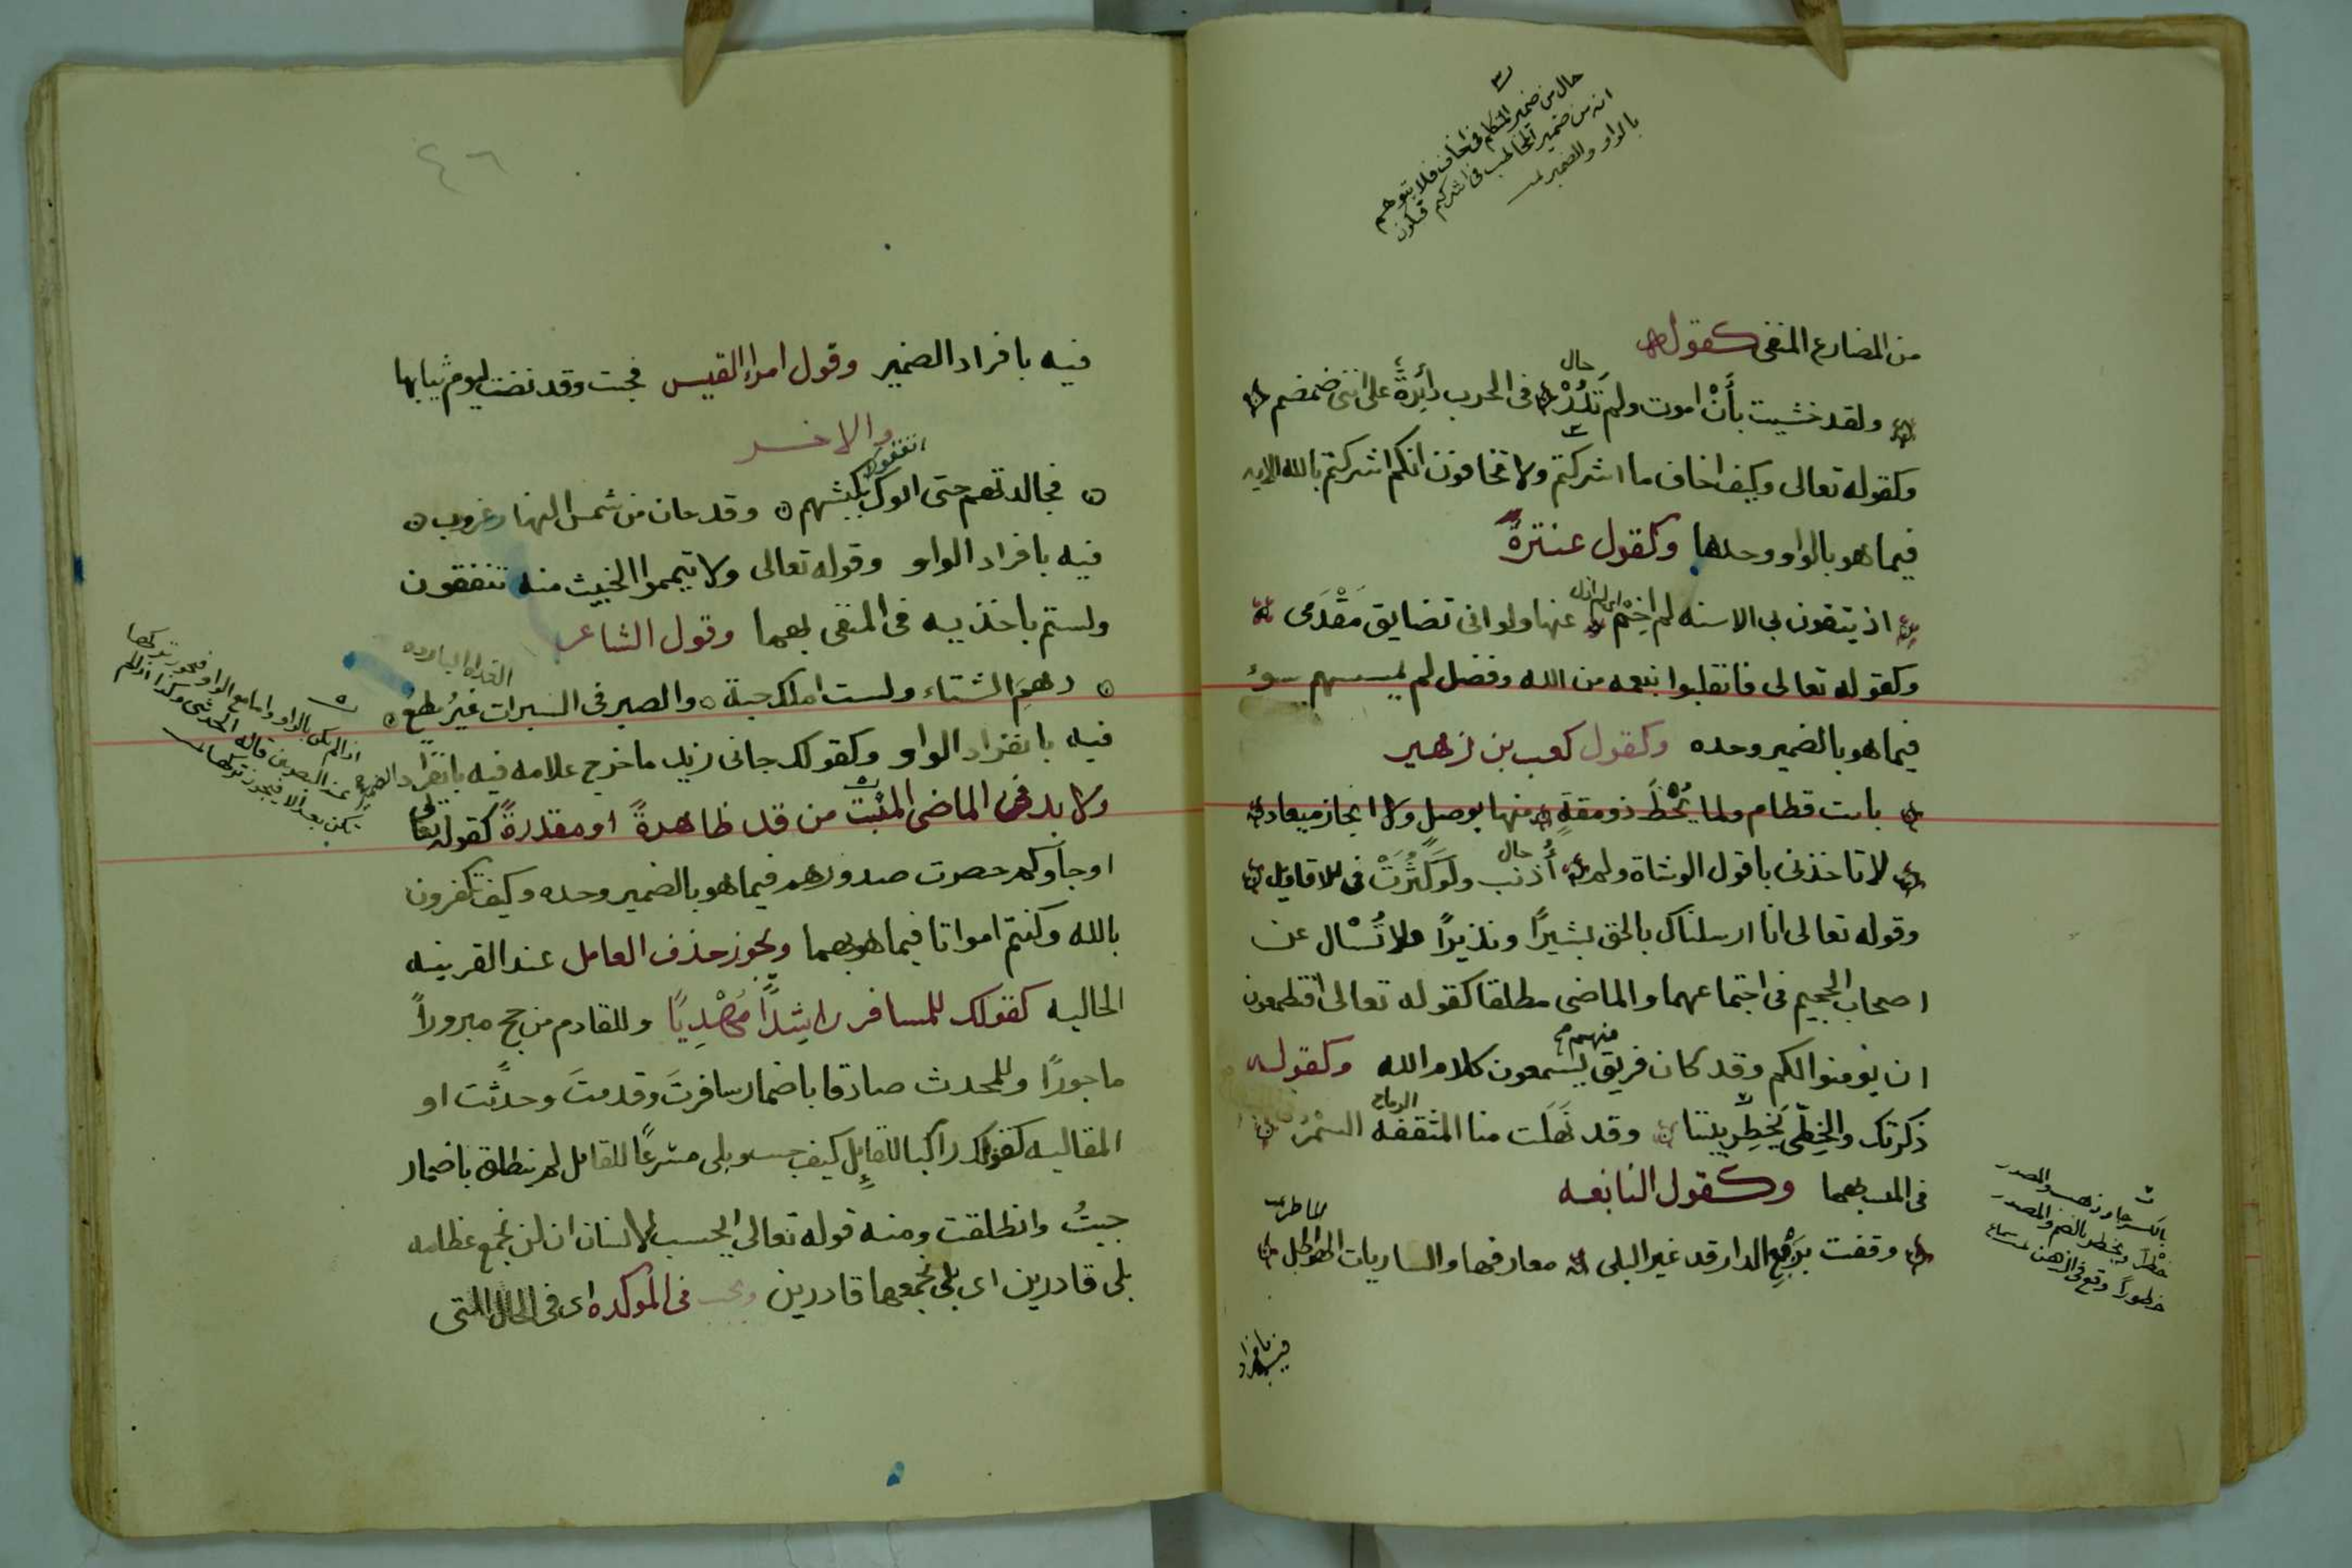 حال من ضمير المتكلم في اخاف فلا يتوهم
انه من ضمير المخاطب في اشركتم فيكون
بالواو والضمير
من المضارع المنفي كقوله
حال
ولقد خشيت بأنْ اموت ولم تَدُرْ في الحرب دائرةٌ على ابنى ضمضم
وكقوله تعالى وكيف اخاف ما اشركتم ولا تخافون انكم اشركتم بالله الايه
فيما هو بالواو وحدها وكقول عنترة
اذ يتقون بي الاسنه لم اخِمْ عنها ولو اني تضايق مَقْدَمى
وكقوله تعالى فانقلبوا بنعمه من الله وفضل لم يمسسهم سوء
فيما هو بالضمير وحده وكقول كعب بن زهير
بانت قطام ولما يَحْظَ ذو مقةٍ منها بوصلٍ ولا انجاز ميعاد
حال
لا تاخذني باقول الوشاة ولم أُذنب ولو كَثُرَتْ في الاقاويل
وقوله تعالى انا ارسلناك بالحق بشيرًا ونذيرًا ولا تُسْال عن
اصحاب الجحيم في اجتماعهما والماضي مطلقا كقوله تعالى افتطمعون
ان يومنوا لكم وقد كان فريق منهم يسمعون كلام الله وكقوله
الرماح
ذكرتك والخِطّى يَخطِر بيننا وقد نَهَلَت منا المثقفه السُمْرُ
في بهما وكقول النابغه
وقفت برَبْعِ الدار قد غير البلى معارفها والساريات الهواطل
بالكسر
خَطْرًا ويخطر بالضم والمصدر
خطورًا وقع في الذهن
فيه بافراد
٤٦
فيه بافراد الضمير وقول امرإ القيس فجئت وقد نضت ليوم ثيابها
والاخر
فجالدتهم حتى اتقوك بكبشهم وقد حان من شمس النهار غروب
فيه بافراد الواو وقوله تعالى ولا تيمموا الخبيث منه تنفقون
ولستم باخذيه في المنفي بهما وقول الشاعر
دهمَ الشتاء ولست املك جبة والصبر في السبرات غيرُ مطيع
فيه بانفراد الواو وكقولك جاني زيد ما خرج علامه فيه بانفراد الضمير
ولا بد في الماضي المثبت من قد ظاهرةً او مقدرةً كقوله تعالى
او جاؤكم حصرت صدورهم فيما هو بالضمير وحده وكيف تكفرون
بالله وكنتم امواتا فيما هو بهما ويجوز حذف العامل عند القرينه
الحاليه كقولك للمسافر راشِدًا مَهْدِيًا وللقادم من حج مبرورًا
ماجورًا وللمحدث صادقا باضمار سافرتَ وقدمتَ وحدثت او
المقاليه كقولك راكبا للقائِل كيف جيت وبلى مسرعًا للقايل لم ينطلق باضمار
جيتُ وانطلقت ومنه قوله تعالى ايحسب الانسان ان لن نجمع عظامه
بلى قادرين اى بلى نجمعها قادرين ويجب في الموكده اى في الحال التى